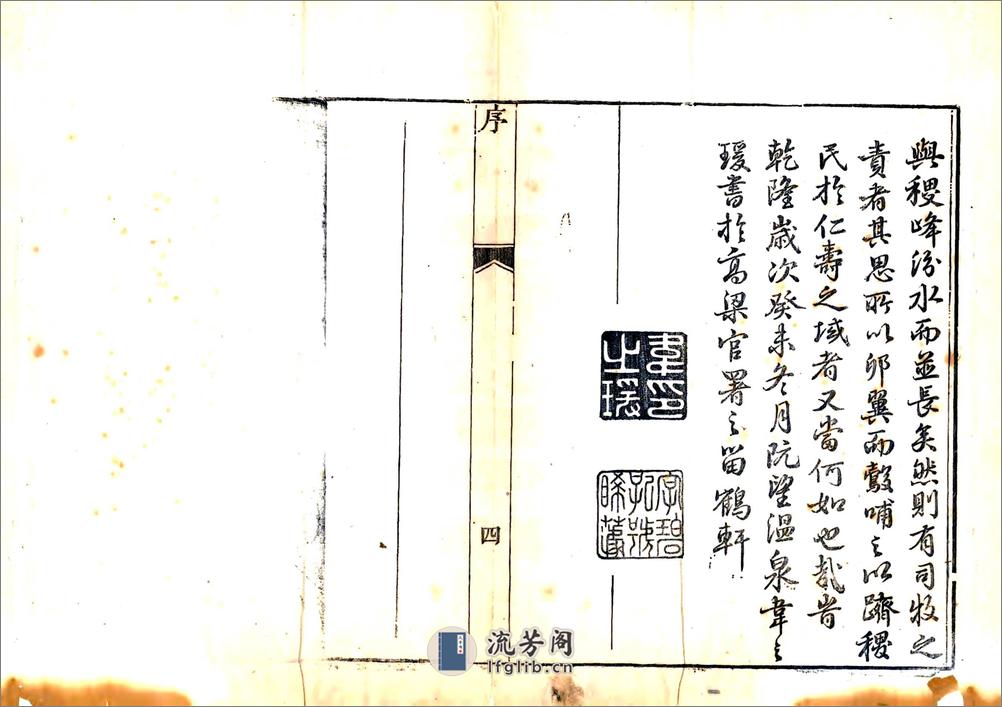 與稷峰汾水而並長矣然則有司牧之
責者其思所以卵翼而鷇哺之以躋稷
民於仁壽之域者又當何如也哉旹
乾隆歲次癸未冬月既望溫泉韋之
瑗書於高梁官署之留鶴軒
韋印
之瑗
字碧
號
序
四
流芳阁
lfglib.cn